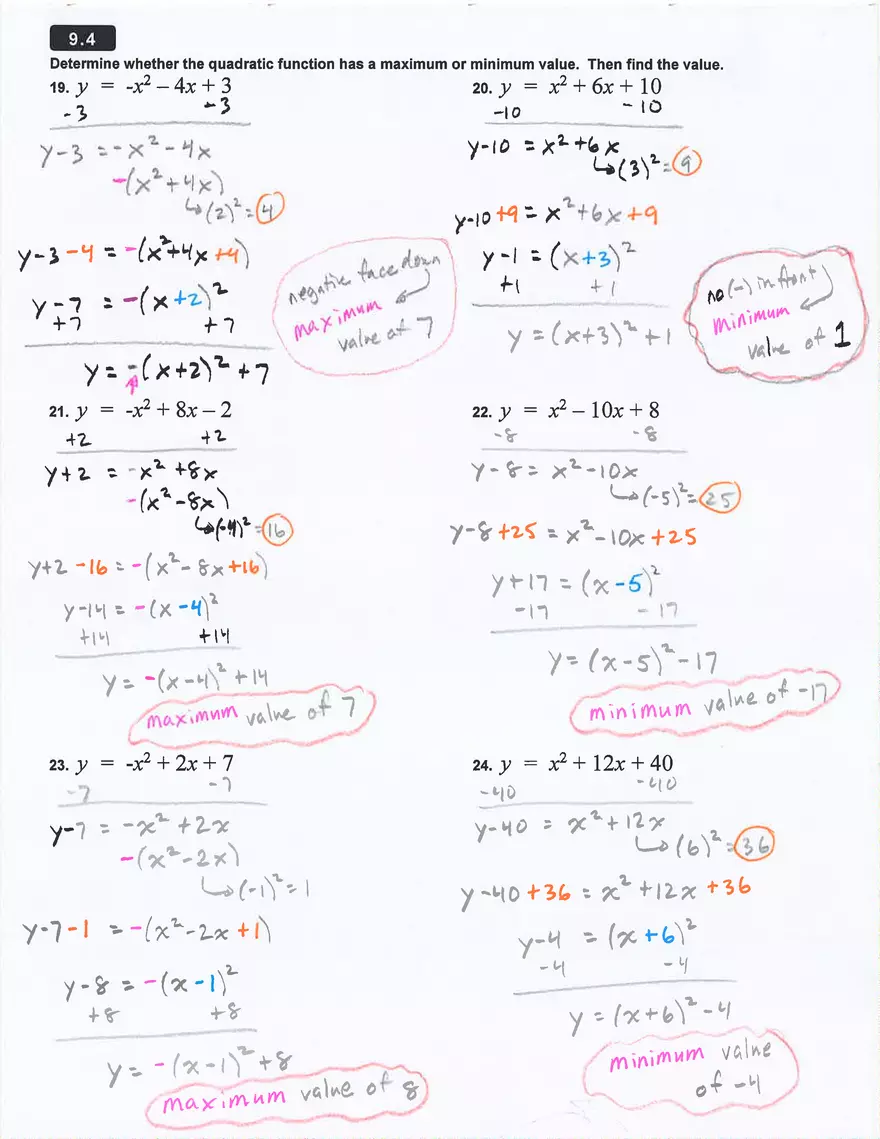 9.4
Determine whether the quadratic function has a maximum or minimum value. Then find the value.
19. y = -x² – 4x + 3
-3 -3
y-3 = -x² -4x
-(x² +4x)
↳(2)² = 4
y-3-4 = -(x²+4x+4)
y-7 = -(x+2)²
+7 +7
y = -(x+2)² +7
negative face down
maximum
value of 7
20. y = x² + 6x + 10
-10 -10
y-10 = x² +6x
↳(3)² = 9
y-10+9 = x²+6x+9
y-1 = (x+3)²
+1 +1
y = (x+3)² +1
no (-) in front
minimum
value of 1
21. y = -x² + 8x – 2
+2 +2
y+2 = -x² +8x
-(x² -8x)
↳(-4)² = 16
y+2-16 = -(x²-8x+16)
y-14 = -(x-4)²
+14 +14
y = -(x-4)² +14
maximum value of 7
22. y = x² – 10x + 8
-8 -8
y-8 = x²-10x
↳(-5)² = 25
y-8+25 = x²-10x+25
y+17 = (x-5)²
-17 -17
y = (x-5)² -17
minimum value of -17
23. y = -x² + 2x + 7
-7 -7
y-7 = -x² +2x
-(x²-2x)
↳(-1)² = 1
y-7-1 = -(x²-2x+1)
y-8 = -(x-1)²
+8 +8
y = -(x-1)² +8
maximum value of 8
24. y = x² + 12x + 40
-40 -40
y-40 = x²+12x
↳(6)² = 36
y-40+36 = x²+12x+36
y-4 = (x+6)²
-4 -4
y = (x+6)² -4
minimum value
of -4